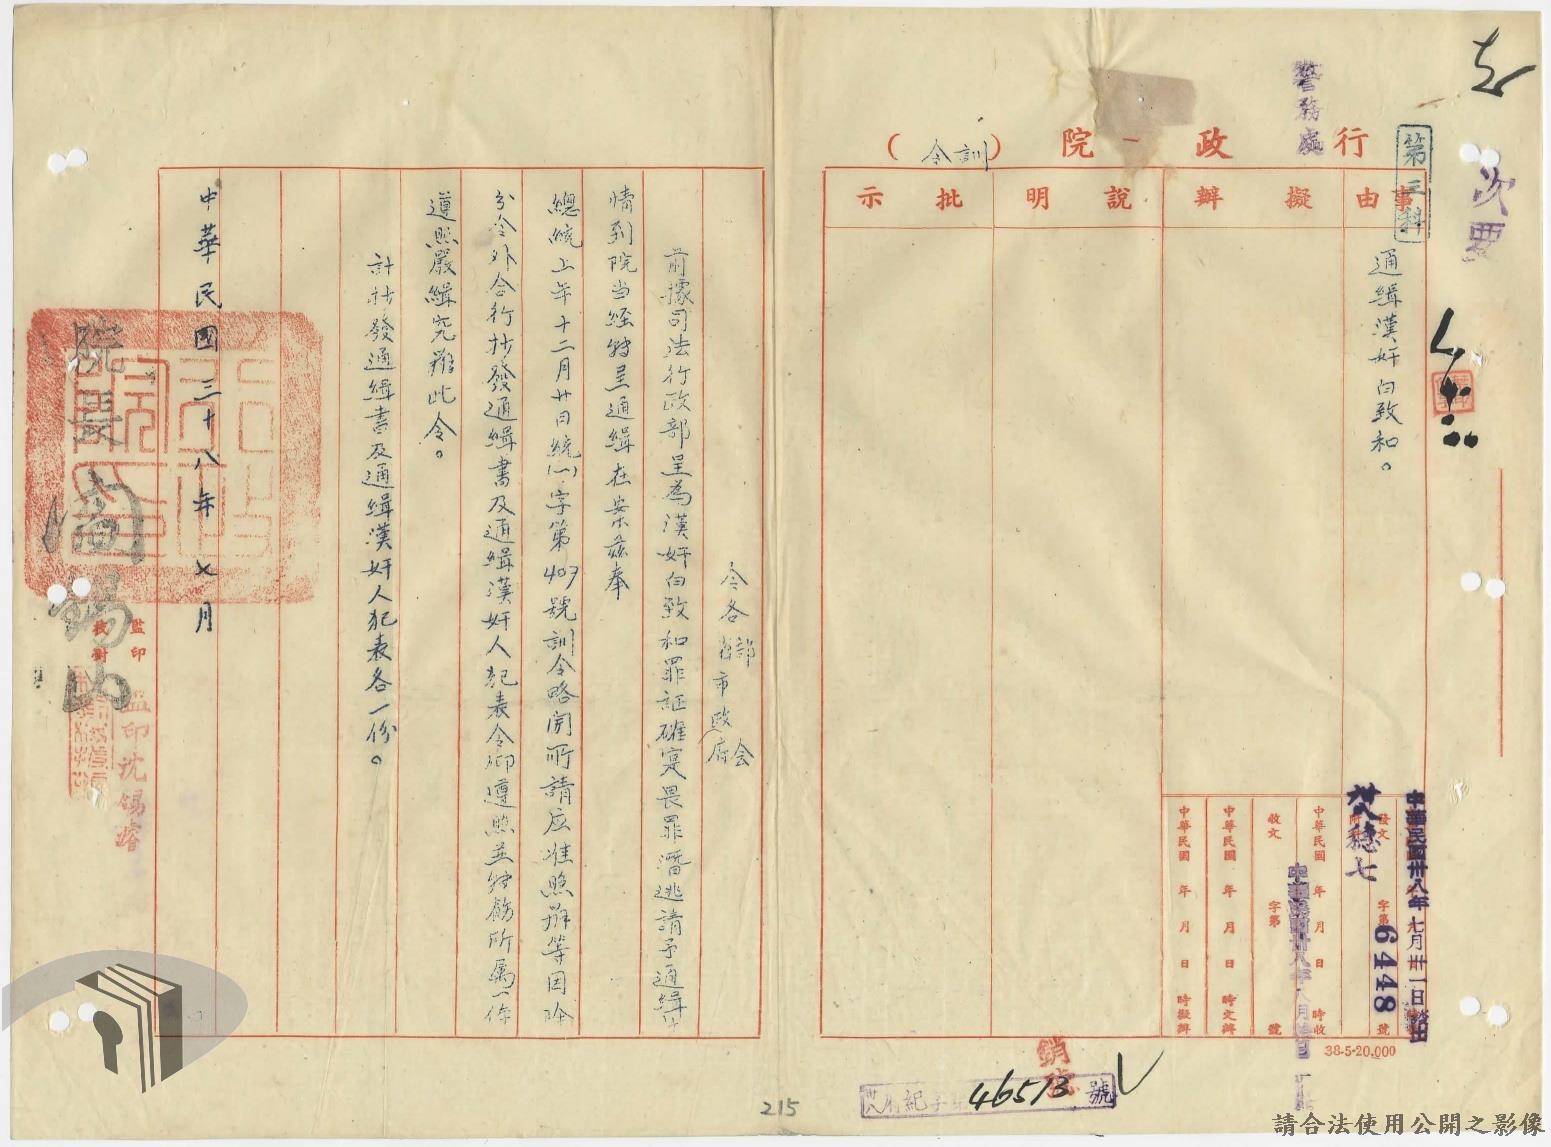 去
次要
警務處
第三科
行政院（訓令）
事由
擬辦
說明
批示
通緝漢奸白致和。
中華民國卅八年七月卅一日發出
發文
卅八穗七
字第 6448 號
中華民國 年 月 日 時收
收文 字第 號
中華民國 年 月 日 時交辦
中華民國 年 月 日 時擬辦
38-5-20,000
銷號
46513 號
令各省市政府部会
前據司法行政部呈為漢奸白致和罪証確寔畏罪潛逃請予通緝
情到院当經轉呈通緝在案茲奉
總統上年十二月廿日統(一)字第407號訓令略開所請应准照辦等因除
分令外合行抄發通緝書及通緝漢奸人犯表令仰遵照並轉飭所属一体
遵照嚴緝究辦此令。
計抄發通緝書及通緝漢奸人犯表各一份。
中華民國三十八年七月
院長 閻錫山
監印
校對
監印沈錫濬
215
請合法使用公開之影像